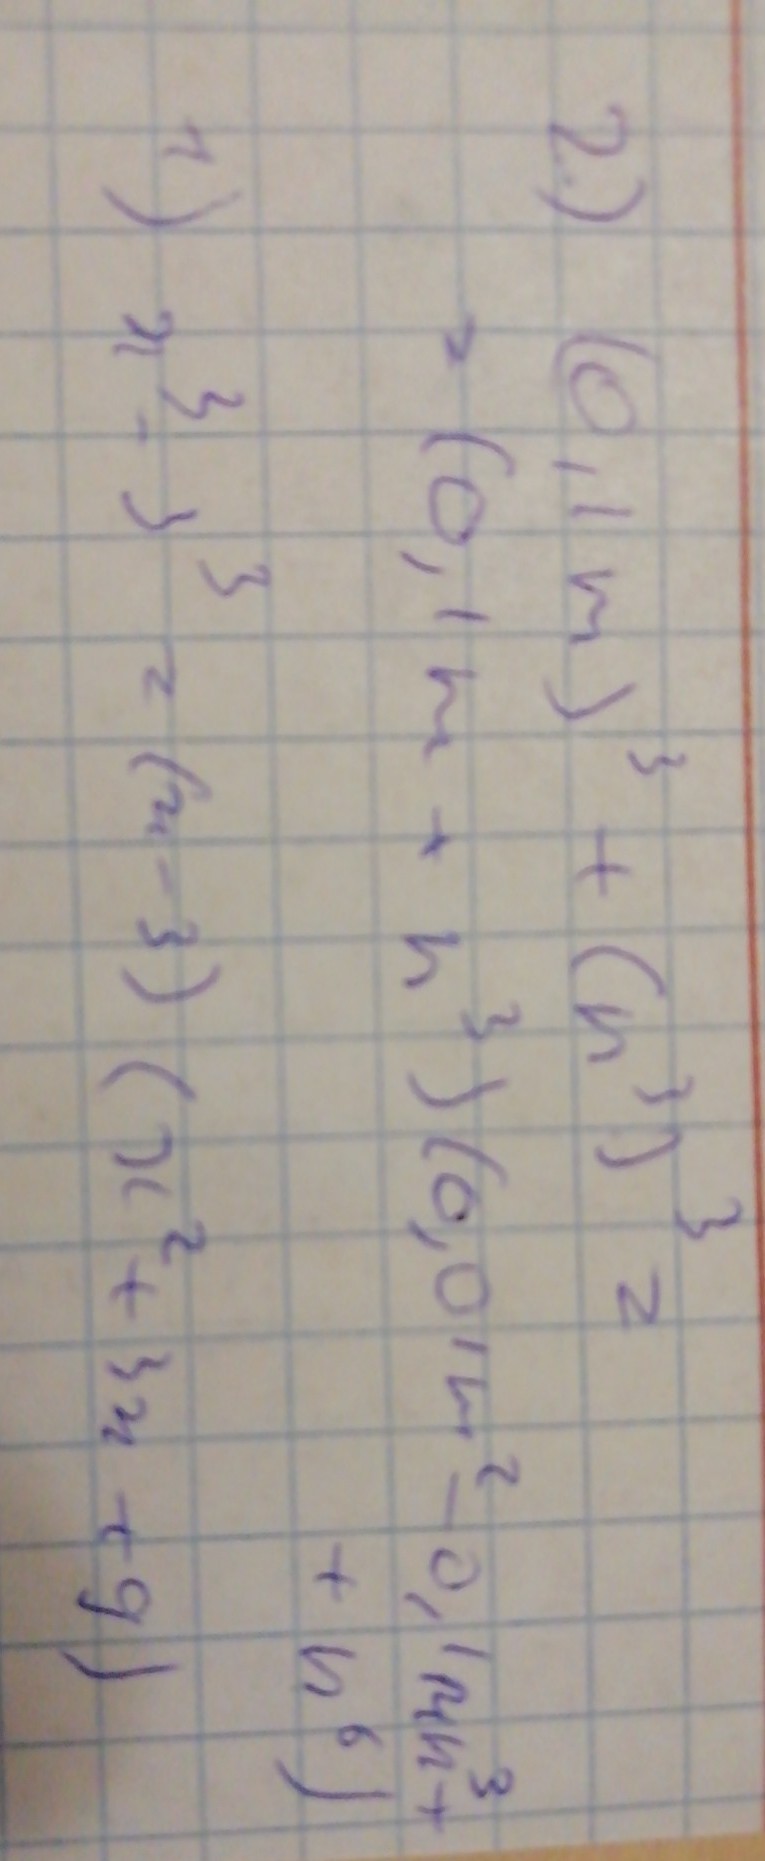 2.) (0,1m)³ + (n³)³ =
= (0,1m + n³)(0,01m² - 0,1mn³ +
+ n⁶)
1) x³ - 3³ = (x - 3)(x² + 3x + 9)